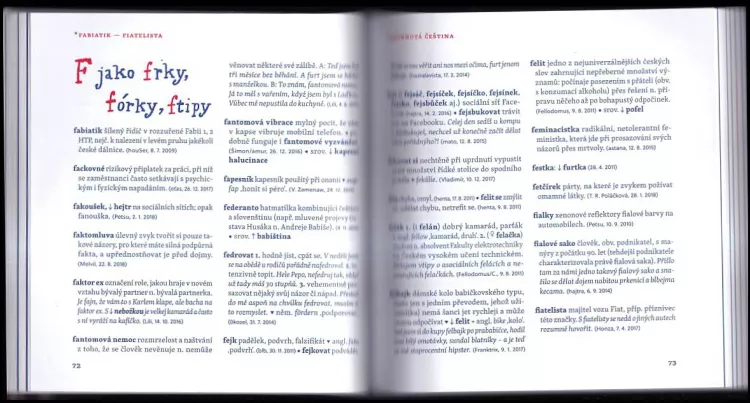 *FABIATIK — FIATELISTA
F jako frky,
fórky, ftipy
fabiatik šílený řidič v rozsužené Fabii 1, 2
HTP, nejč. k nalezení v levém pruhu jakékoli
české dálnice. (houšer, 8. 7. 2009)
fackovné rizikový příplatek za práci, při níž
se zaměstnanci často setkávají s psychic-
kým i fyzickým napadáním. (sfas, 26. 12. 2017)
fakoušek, ↓ hejtr na sociálních sítích; opak
fanouška. (Petsu, 2. 1. 2018)
faktomluva úlevný zvyk tvořit si pouze ta-
kové názory, pro které máte silná podpůrná
fakta, a upřednostňovat je před dojmy.
(Melvil, 22. 8. 2018)
faktor ex označení role, jakou hraje v novém
vztahu bývalý partner n. bývalá partnerka.
Je fajn, že vám to s Karlem klape, ale bacha na
faktor ex. S ↓ nebožkou je velkej kamarád a často
s ní vyráží na kafíčko. (Lili, 14. 10. 2016)
fantomová nemoc rozmrzelost a naštvání
z toho, že se člověk nevěnuje n. nemůže
72
věnovat některé své zálibě. A: Teď jsem
tři měsíce bez běhání. A furt jsem se
s manželkou. B: To znám, fantomová
Já to mál s vařením, když jsem byl s
Vůbec mě nepustila do kuchyně.
fantomová vibrace mylný pocit, že
v kapse vibruje mobilní telefon.
dobně funguje i fantomové vyzvánění
(Šimon/amur, 26. 12. 2016) • srov. ↓
halucinace
fapesník kapesník použitý při onanii
fap ‚honit si péro'. (V. Zamenaw, 24.
federanto hatmatilka kombinující češtinu
a slovenštinu (např. mluvené projevy
stava Husáka n. Andreje Babiše).
srov. ↑ babiština
fedrovat 1. hodně jíst, cpát se.
na obědě u rodičů pořádně nafedroval
tenzivně topit. Hele Pepo, nefedruj
už tady máš jo stupňů. 3. vehementně
sazovat nějaký svůj názor či nápad.
do mě aspoň na chvilku fedrovat, musím
to rozmyslet. • něm. fördern ‚podporovat'
(Okosel, 31. 7. 2014)
fejk padělek, podvrh, falzifikát • angl.
‚podvrh'. (bfb, 30. 11. 2017) • fejkovat
ČEŠTINA
věřit ani nos mezi očima, furt jenom
17. 2. 2014)
fejsáč, fejsíček, fejsíčko, fejsínek,
fejsbůček aj.) sociální síť Face-
14. 2. 2016) • fejsbukovat trávit
Facebooku. Celej den sedíl u kompu
nechceš už konečně začít dělat
(mato, 15. 8. 2015)
si nechtěně při uprdnutí vypustit
množství řídké stolice do spodního
(Vladimír, 10. 12. 2017)
17. 8. 2015) • felit se zmýlit
chybu, netrefit se. (henta, 9. 8. 2017)
felák (i felán) dobrý kamarád, parťák
angl. fellow ‚kamarád, druh'. 2. (♀ felačka)
n. absolvent Fakulty elektrotechniky
českém vysokém učení technickém.
vtipy o asociálních felácích a ne-
felačkách. (Feliodomus/C.,
dámské kolo babičkovského typu,
s jedním převodem, jehož
nemá šanci jet rychleji a může
• ↓ felit – angl. bike ‚kolo'.
jsem si do kupy felbajk po prababičce, hadil
omotávky, sundal blatníky – a je teď
stoprocentní hipster. (Franktrix, 9. 1. 2017)
felit jedno z nejuniverzálnějších českých
slov zahrnující nepřeberné množství vý-
znamů: počínaje posezením s přáteli (obv.
s konzumací alkoholu) přes řešení n. pří-
pravu něčeho až po bohapustý odpočinek.
(Feliodomus, 9. 8. 2011) • srov. ↓ pofel
feminacistka radikální, netolerantní fe-
ministka, která jde při prosazování svých
názorů přes mrtvoly. (astana, 12. 9. 2015)
festka: ↓ furtka (28. 4. 2011)
fetčírek párty, na které je zvykem požívat
omamné látky. (T. R. Poláčková, 28. 1. 2018)
fialky xenonové reflektory fialové barvy na
automobilech. (Petsu, 10. 9. 2010)
fialové sako člověk, obv. podnikatel, s ma-
nýry z počátku 90. let (tehdejší podnikatele
charakterizovala právě fialová saka). Přišlo
tam za námi jedno takový fialový sako a sna-
žilo se dělat dojem nabitou prkenicí a blbejma
kecama. (hajira, 6. 9. 2014)
fiatelista majitel vozu Fiat, příp. příznivec
této značky. S fiatelisty se nedá o jiných autech
rozumně hovořit. (Honza, 7. 4. 2017)
73